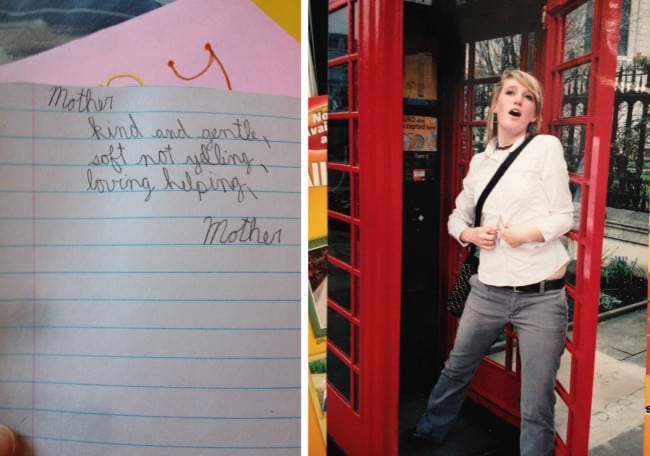 y
Mother
kind and gentle,
soft not yelling,
loving helping,
Mother
accepted